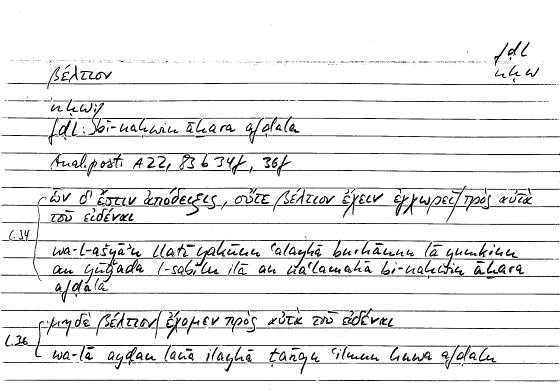 fḍl
βέλτιον nḥw
nḥw
fḍl: bi-naḥwin āḫara afḍala
Anal. post. A 22, 83 b 34f, 36f
ὧν δ' ἔστιν ἀπόδειξις, οὔτε βέλτιον ἔχειν ἐγχωρεῖ/πρὸς αὐτὰ
τοῦ εἰδέναι
l.34
wa-l-ašyāʾu llatī yakūnu ʿalayhā burhānun lā yumkinu
an yūǧada l-sabīlu ilā an naʿlamahā bi-naḥwin āḫara
afḍala
μηδὲ βέλτιον/ἔχομεν πρὸς αὐτὰ τοῦ εἰδέναι
l.36
wa-lā ayḍan lanā ilayhā ʿilmun huwa afḍalu